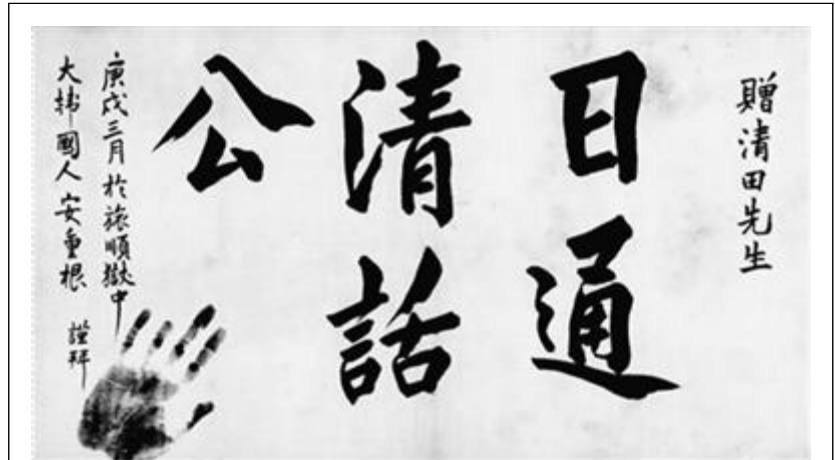 贈清田先生
日通
清話
公
庚戌三月於旅順獄中
大韓國人安重根
謹拜